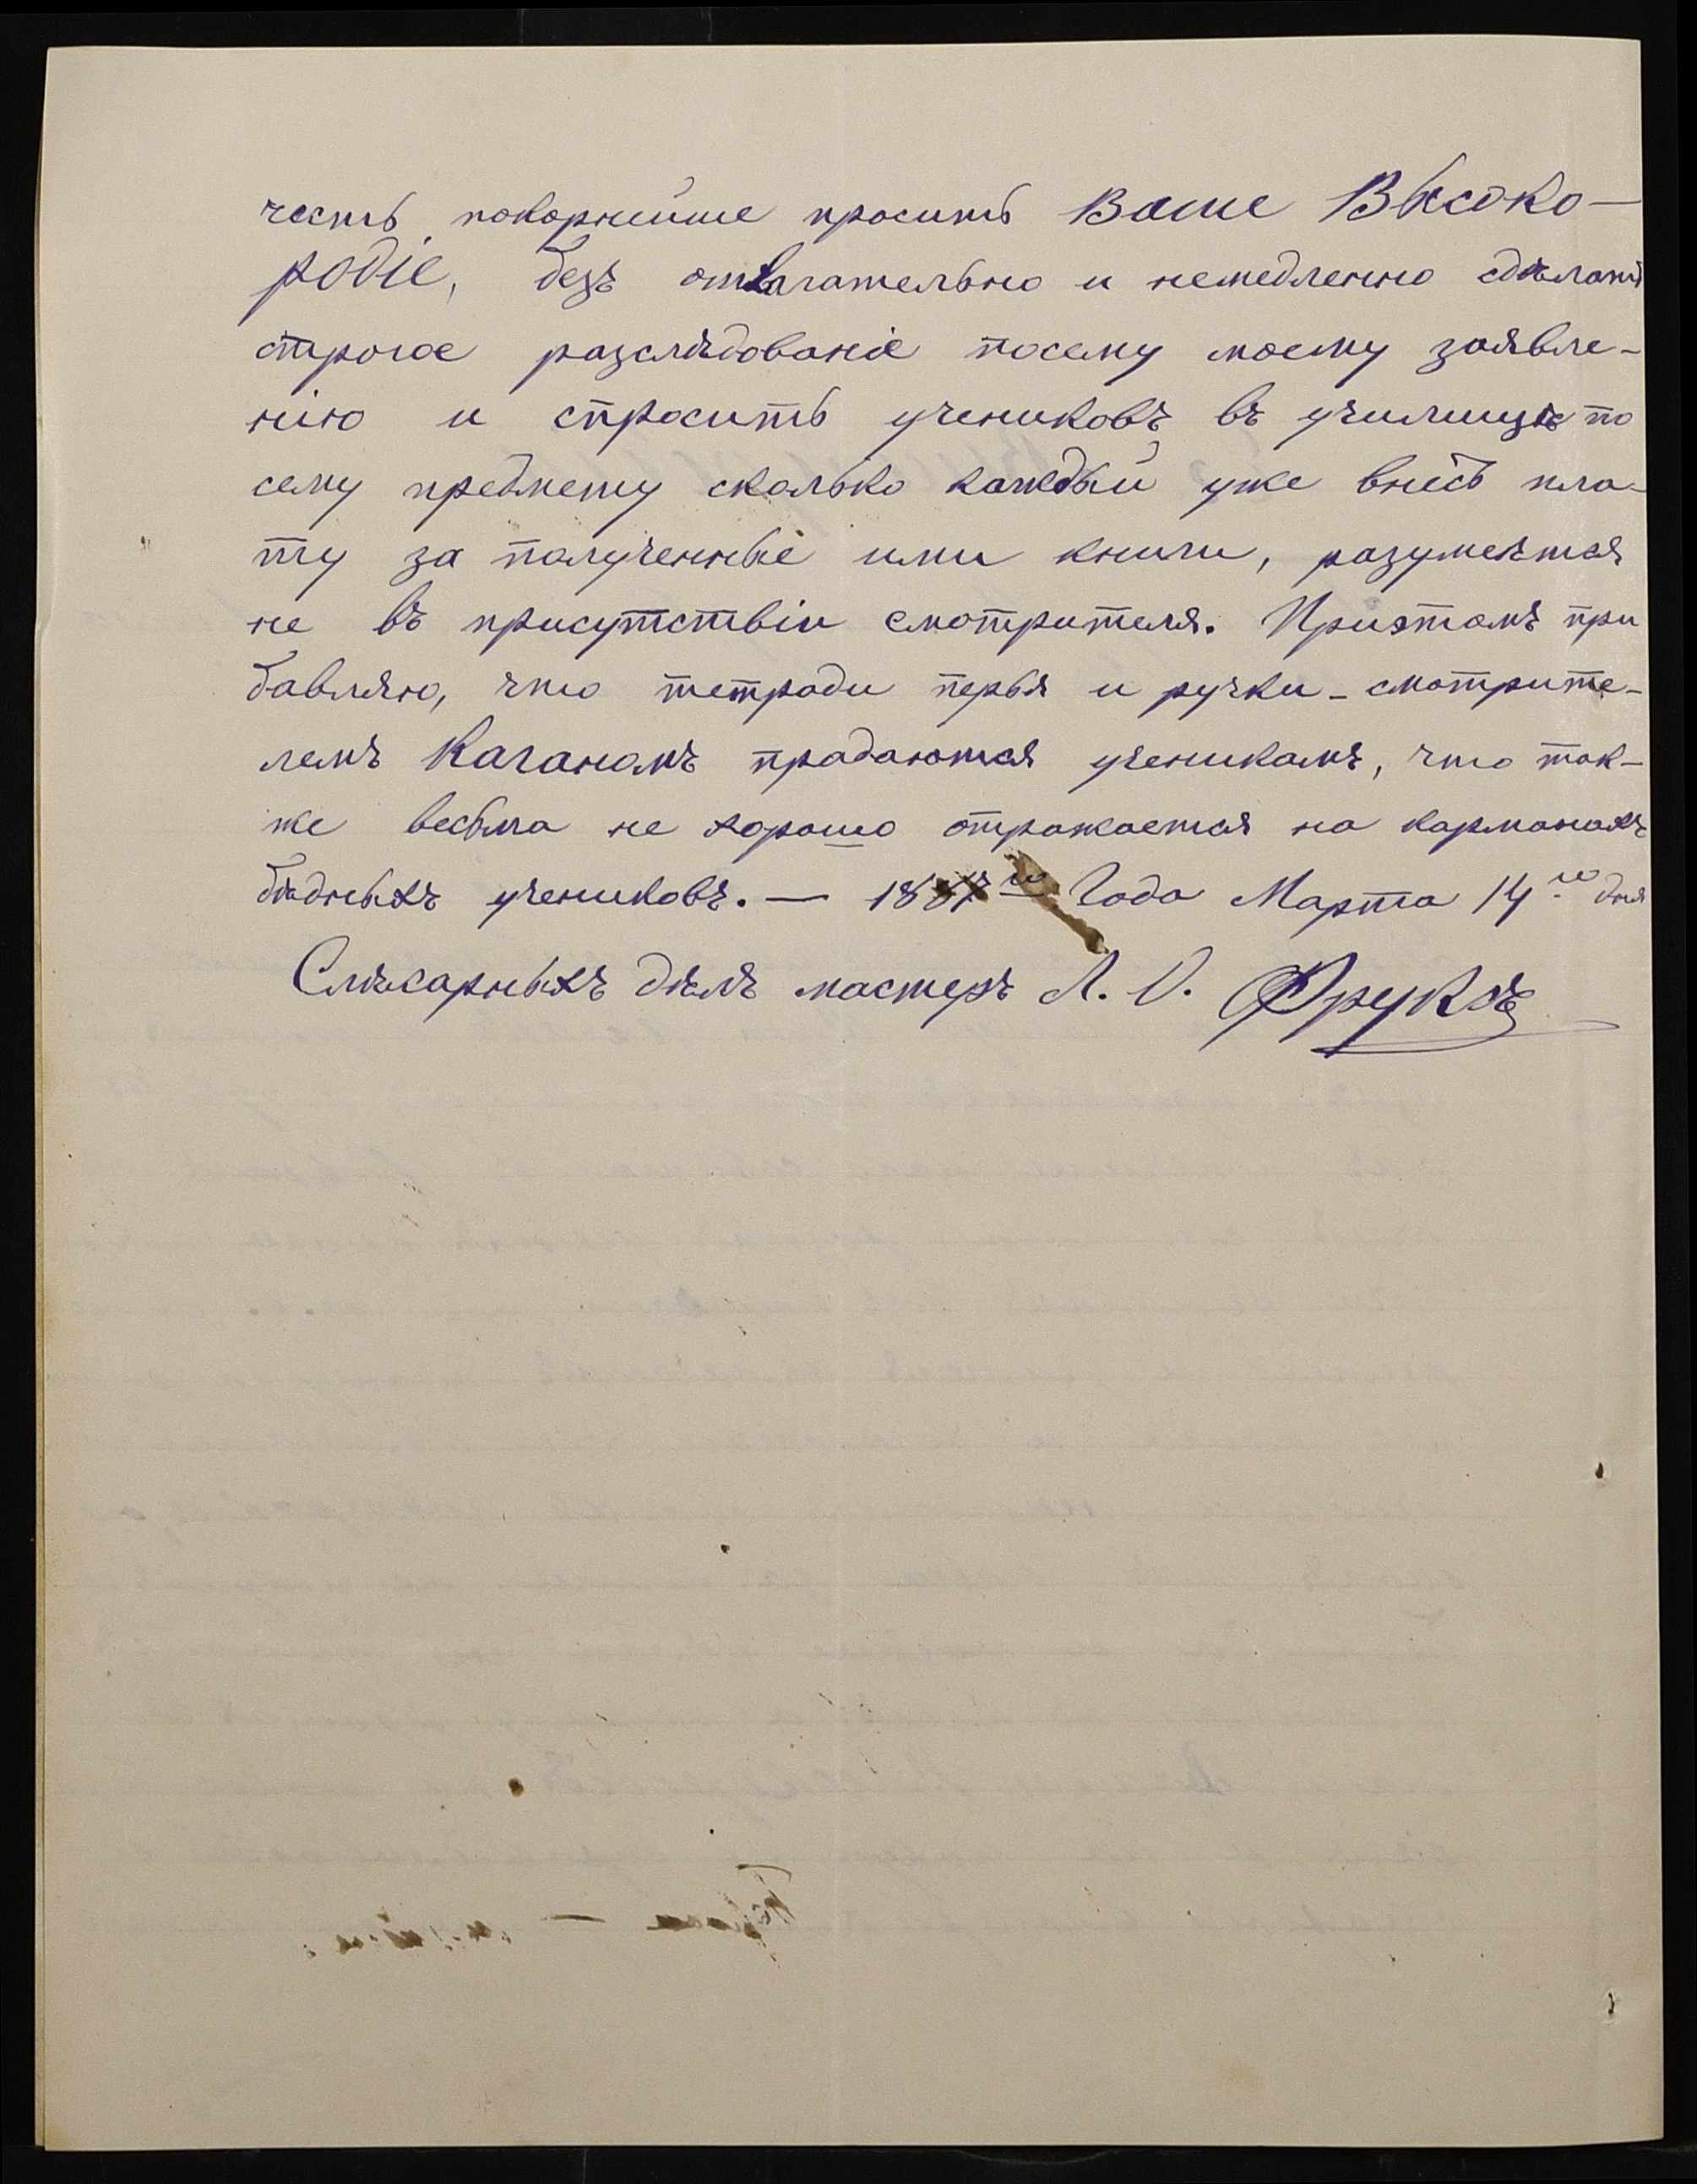 честь покорнейше просить Ваше Высоко-
родіе, безъ отлагательно и немедленно сдѣлать
строгое разслѣдованіе посему моему заявле-
нію и спросить учениковъ въ училищѣ по
сему предмету сколько каждый уже внесъ пла-
ту за полученные ими книги, разумеѣтся
не въ присутствіи смотрителя. Приэтомъ при
бавляю, что тетради перья и ручки - смотрите-
лемъ Каганомъ продаются ученикамъ, что так-
же весьма не хорошо отражается на карманахъ
бѣдныхъ учениковъ. — 1887го Года Марта 14го дня
Слѣсарныхъ дѣлъ мастеръ Л. О. Фруксъ